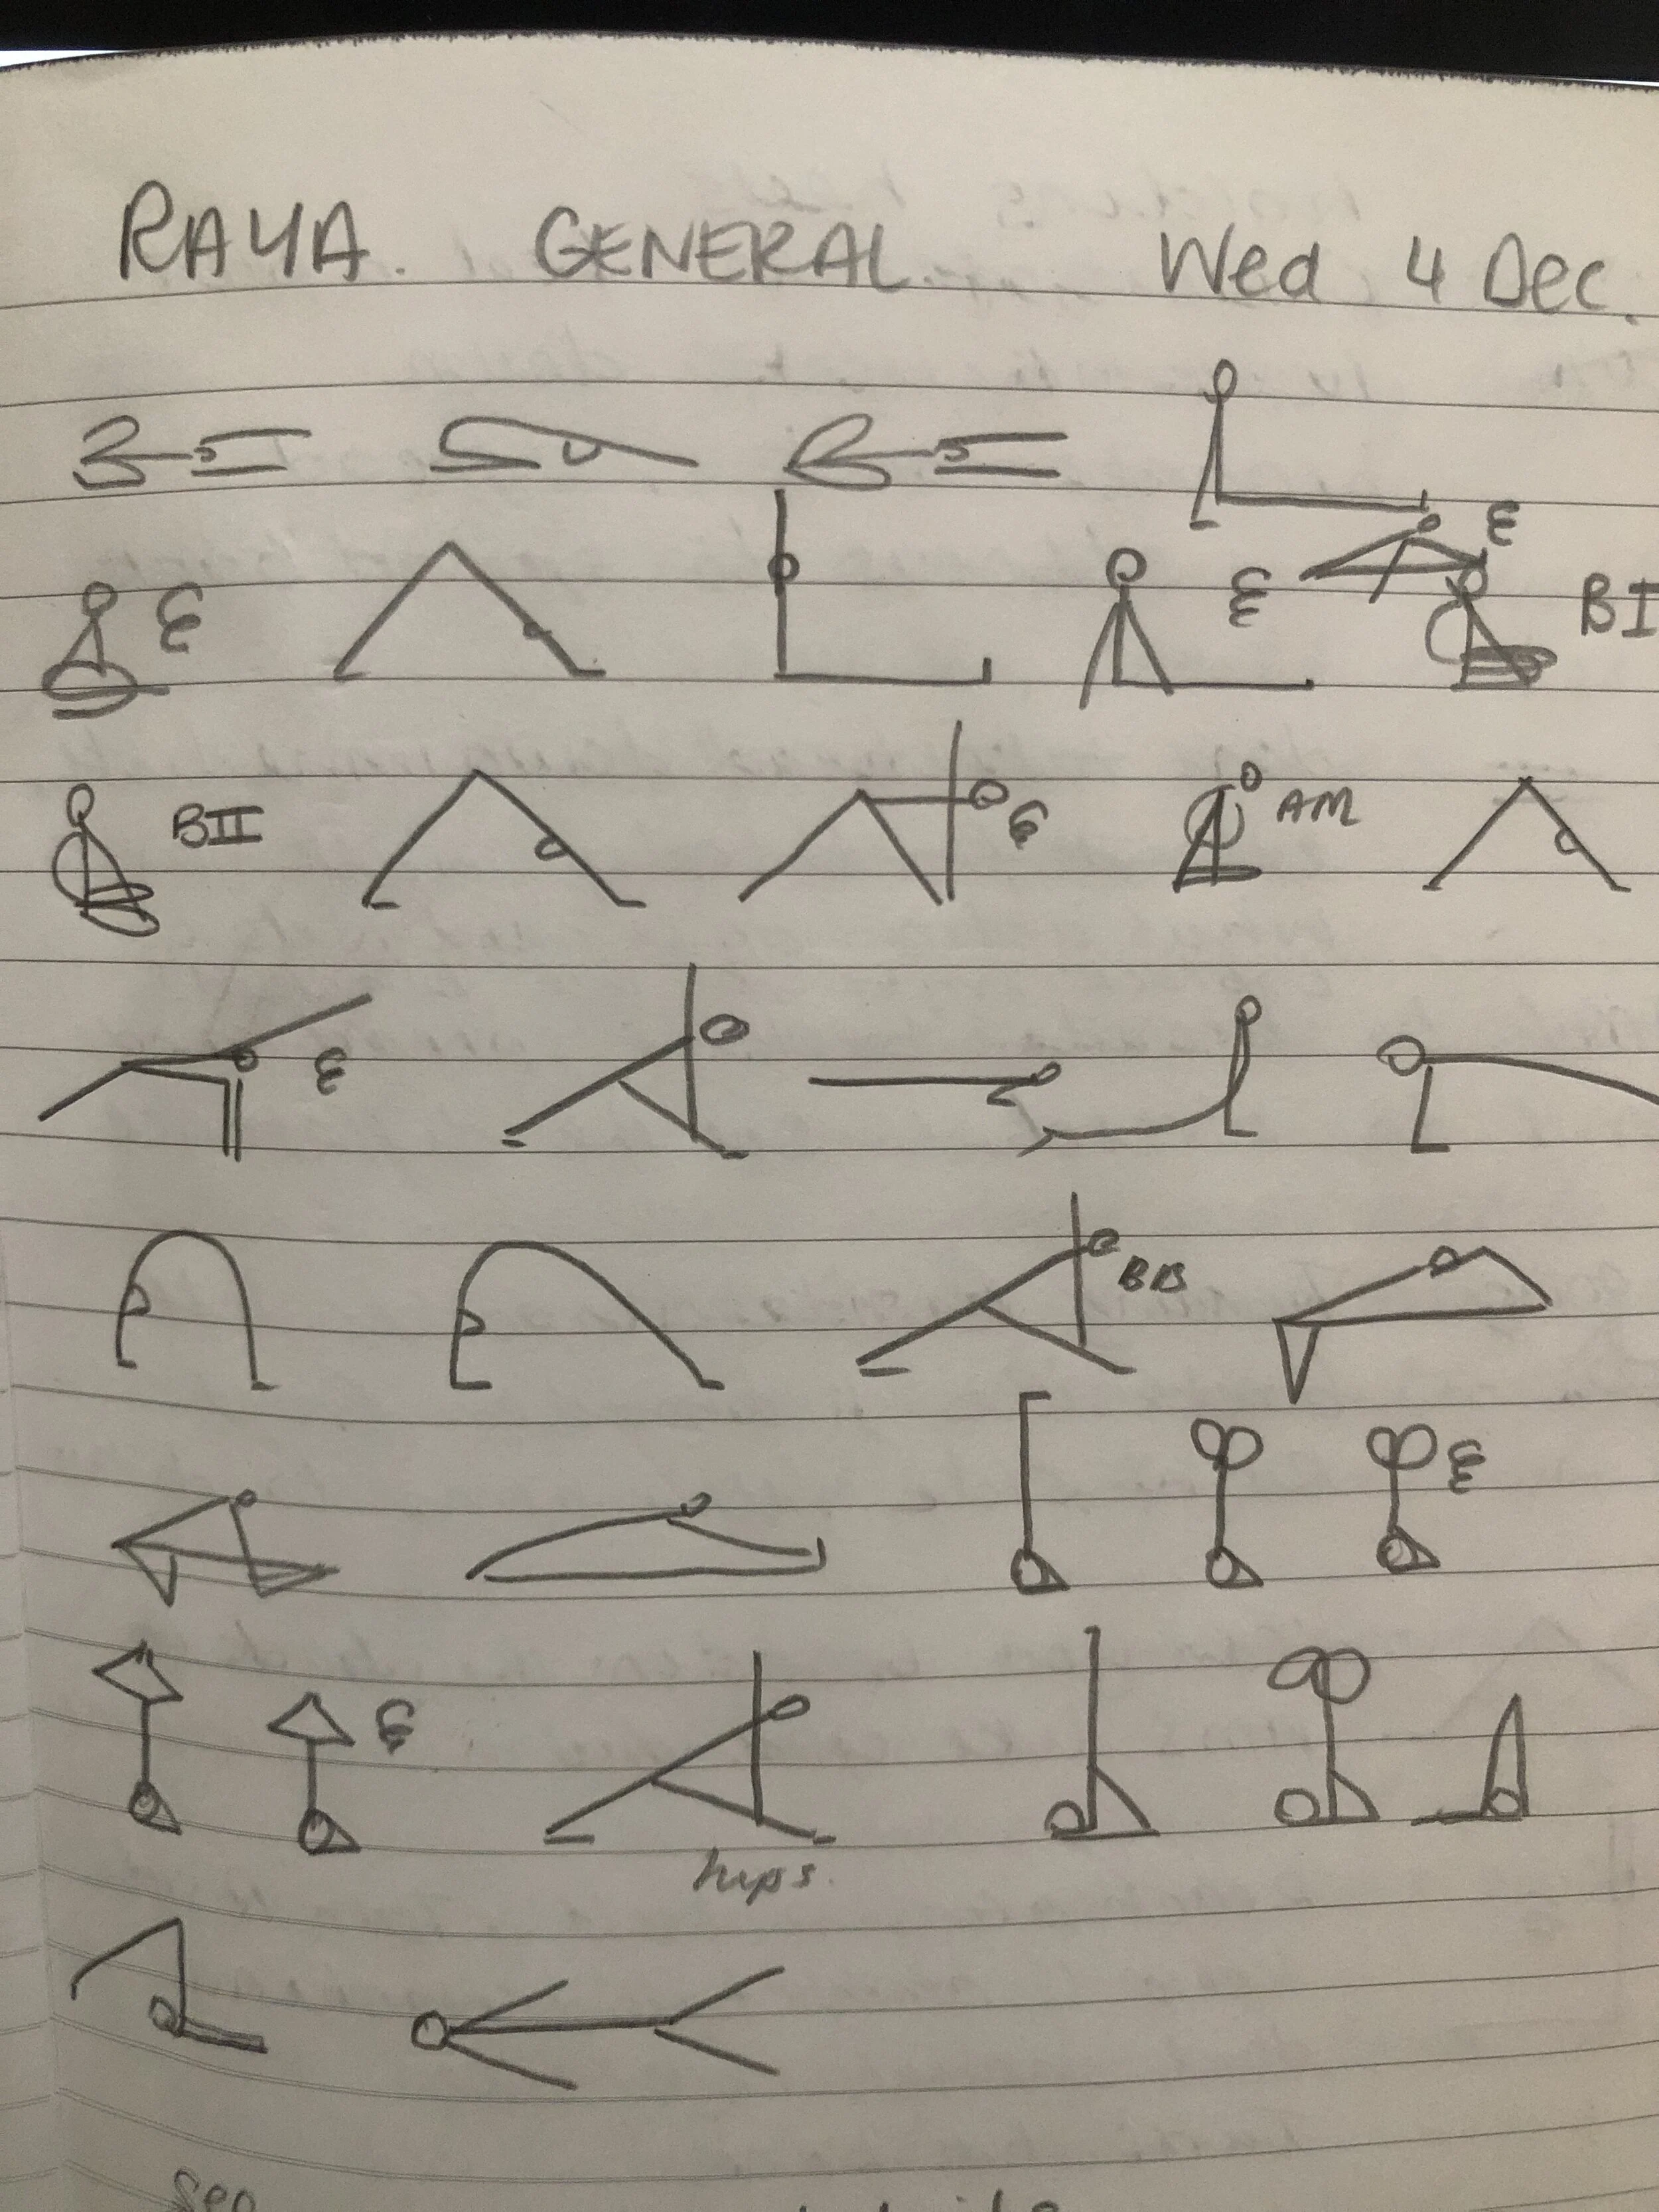 RAYA. GENERAL. Wed 4 Dec.
BI
BII
AM
BB
hips.